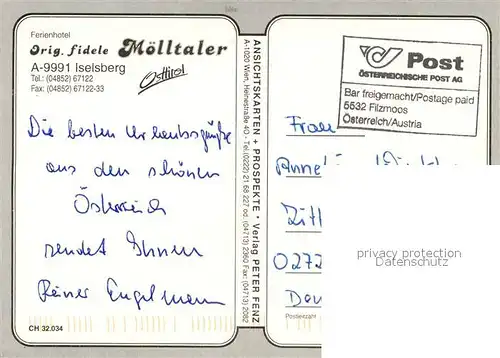 Ferienhotel
Orig. fidele Mölltaler
A-9991 Iselsberg
Tel.: (04852) 67122
Fax: (04852) 67122-33
Osttirol
Die besten Urlaubsgrüße
aus den schönen
Österreich
sendet Ihnen
Reiner Engelmann
CH 32.034
ANSICHTSKARTEN + PROSPEKTE * Verlag PETER FENZ
A-1020 Wien, Heinestraße 40 - Tel. (0222) 21 68 227 od. (04713) 2360 Fax: (04713) 2082
Post
ÖSTERREICHISCHE POST AG
Bar freigemacht/Postage paid
5532 Filzmoos
Österreich/Austria
Frau
0272
privacy protection
Datenschutz
Postleitzahl